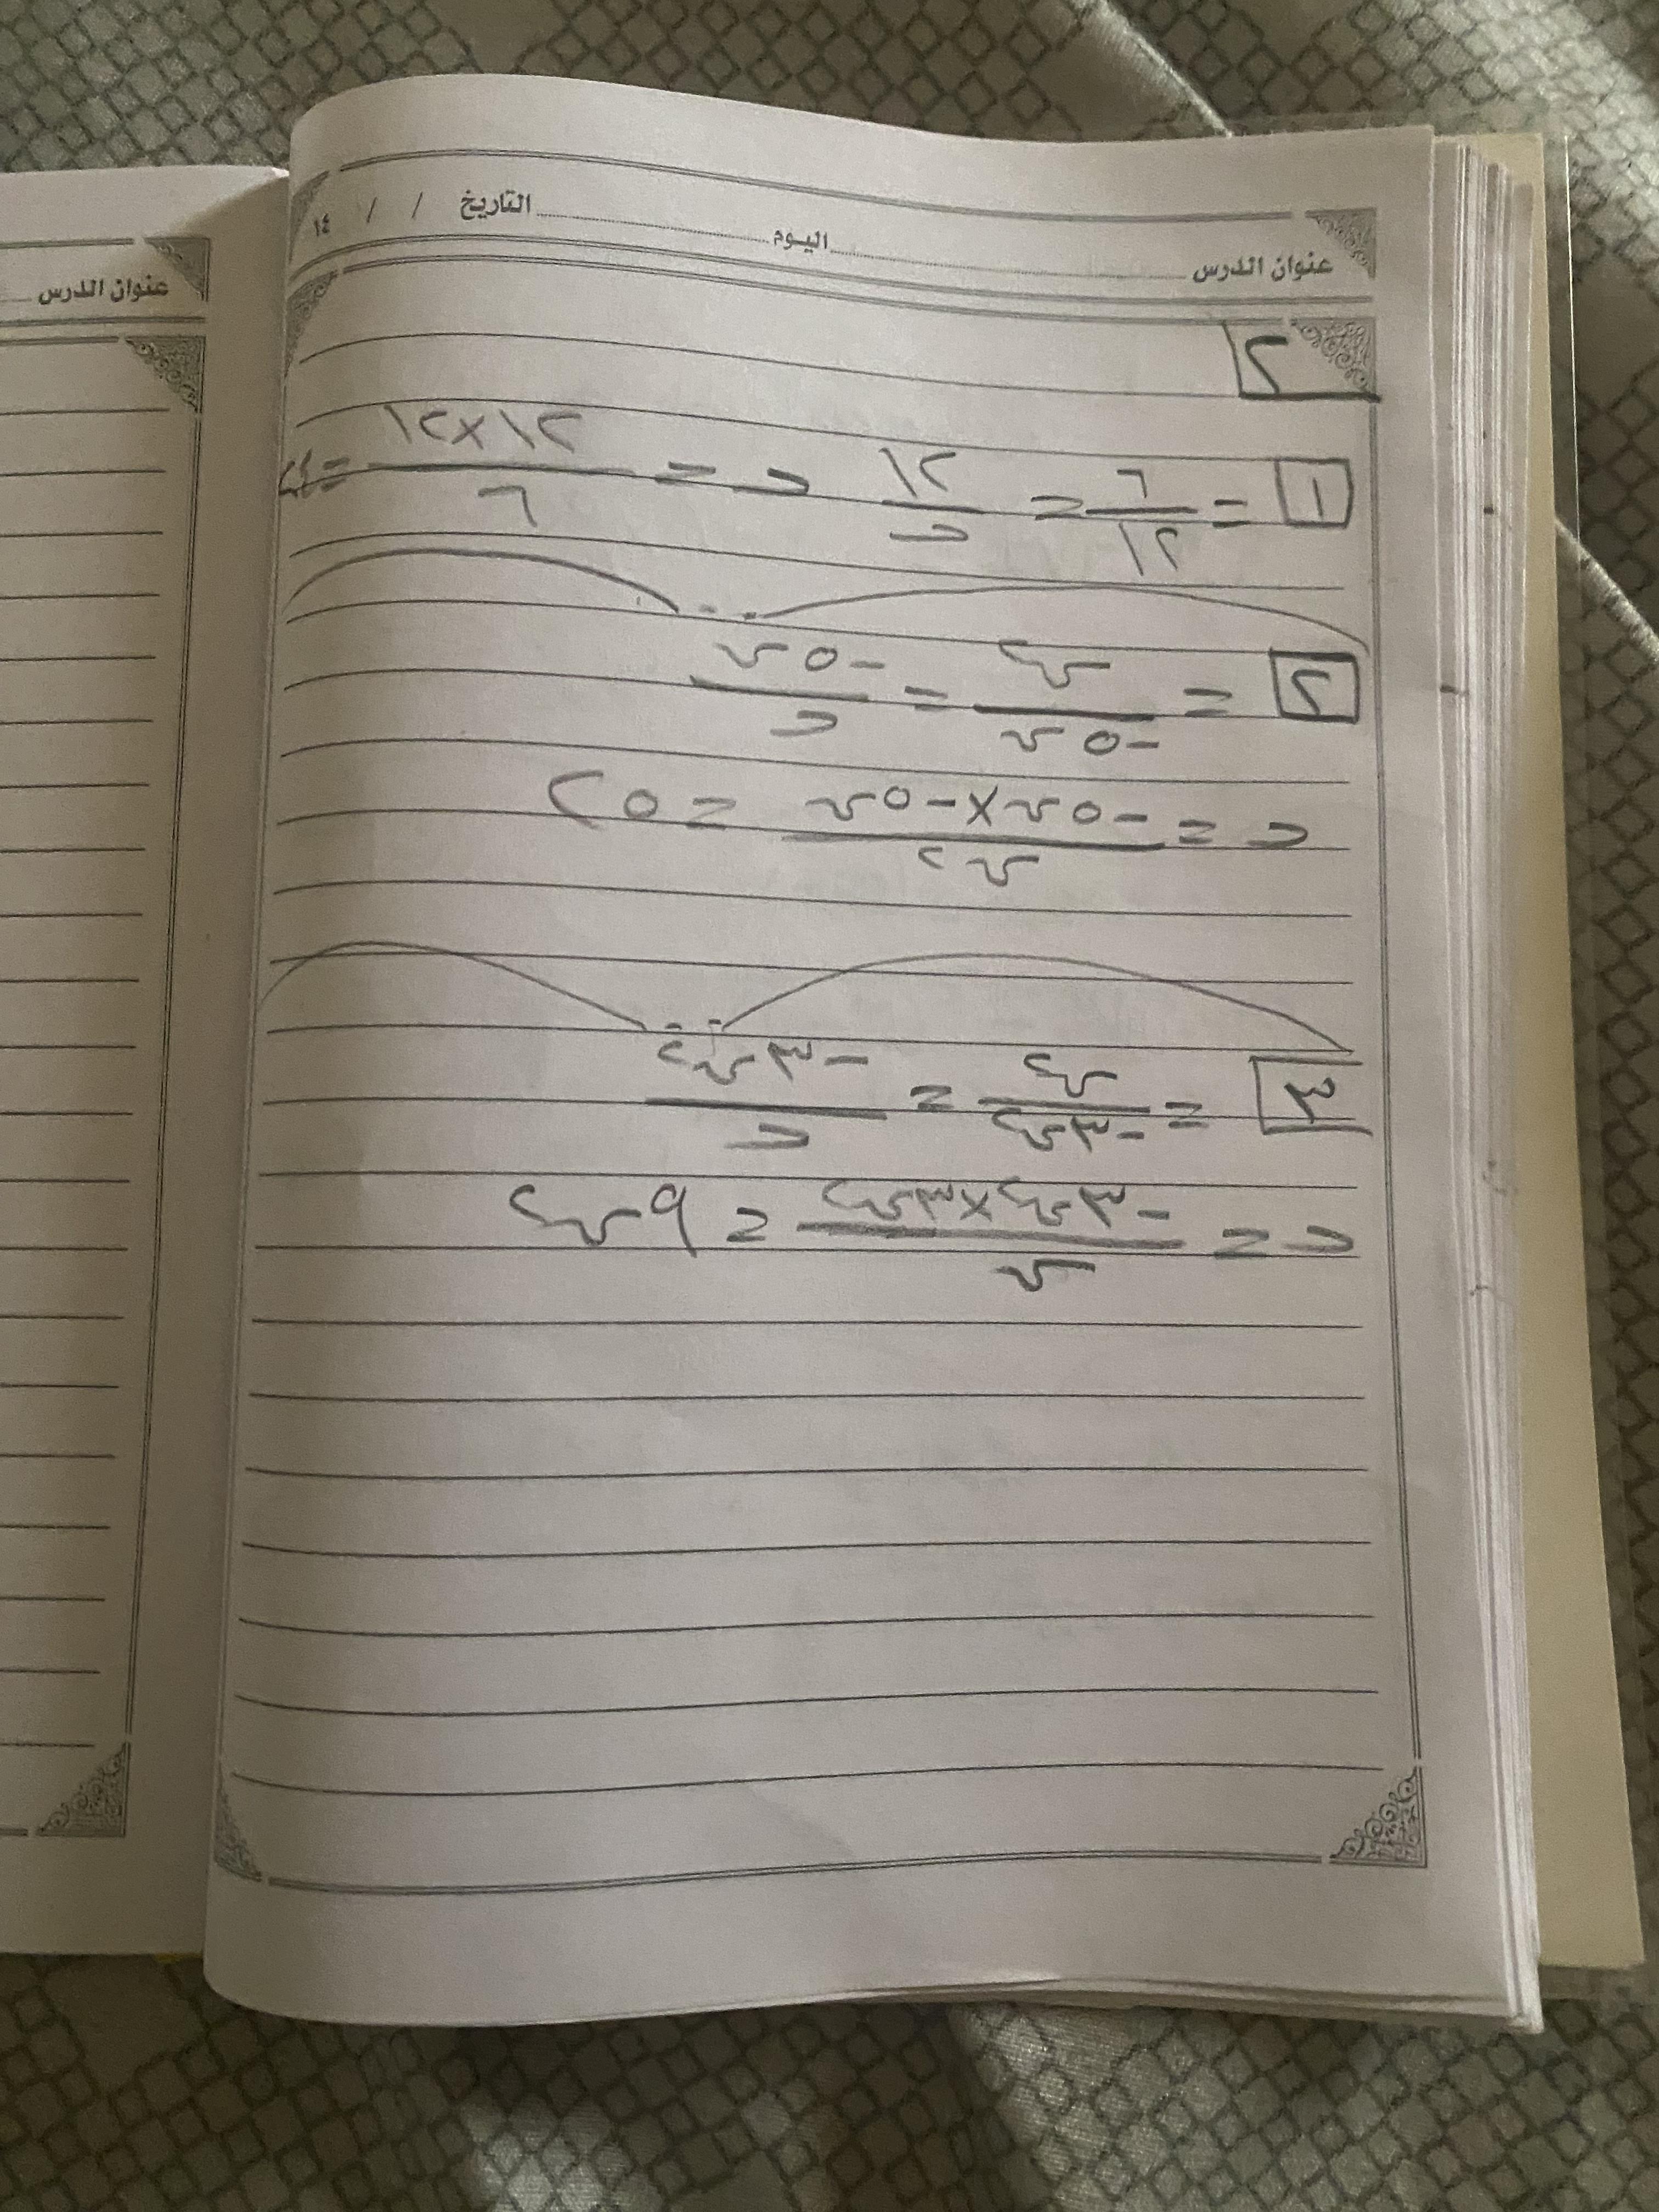 عنوان الدرس اليوم التاريخ / / ١٤
عنوان الدرس
٢
١ = ٦/١٢ = ١٢/ب ب = ١٢×١٢/٦ = ٢٤
٢ = س٢/-٥س = -٥س/ب
ب = -٥س×-٥س/س٢ = ٢٥
٣ = س٢/-٣س٢ = -٣س٢/ب
ب = -٣س٢×٣س٢/س = ٩س٢